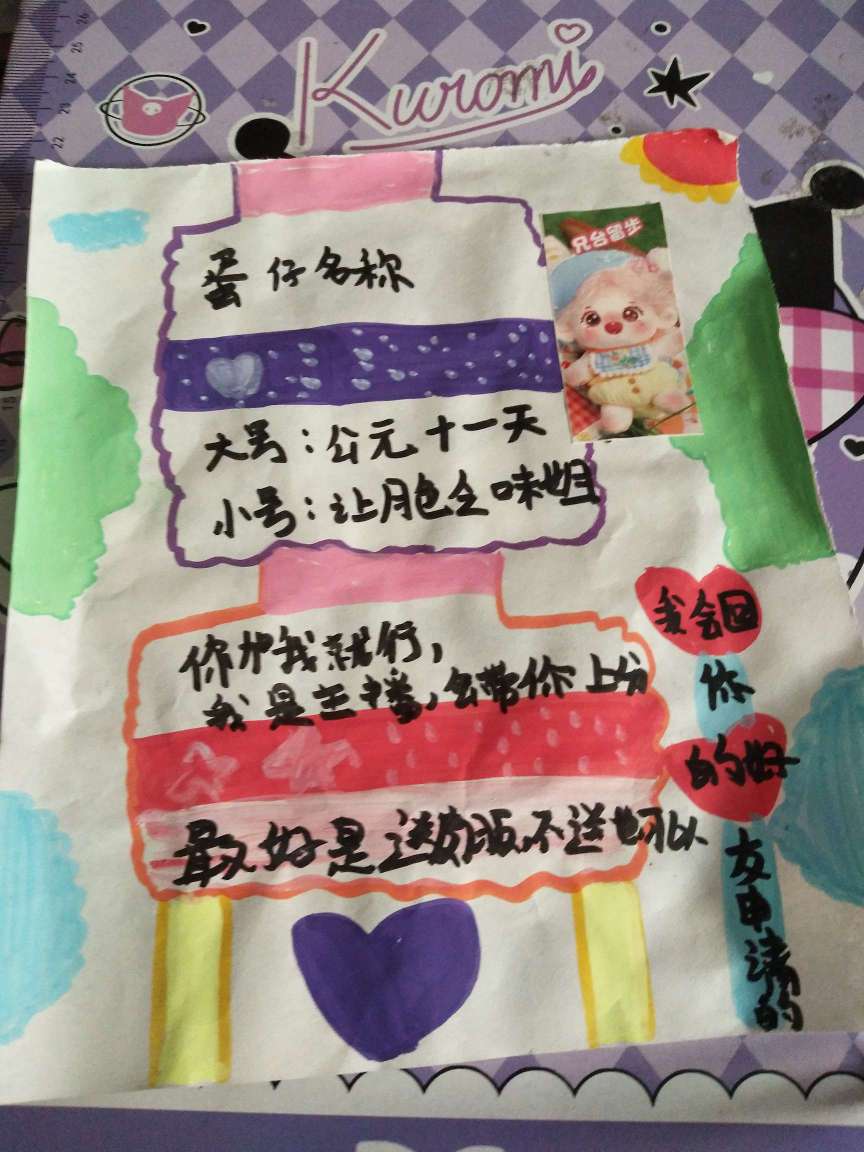 Kuromi
26
25
24
23
22
兄台留步
蛋仔名称
大号：公元十一天
小号：让月色全味姐
你加我就行，
我是主播，会带你上分
最好是送皮肤，不送也可以
我会回
你
的好
友申请的